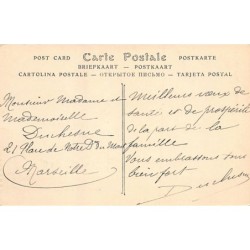 POST CARD Carte Postale POSTKARTE
BRIEFKAART — POSTKAART
CARTOLINA POSTALE — ОТКРЫТОЕ ПИСЬМО — TARJETA POSTAL
Monsieur Madame et
Mademoiselle
Duchesne
21 Place de Notre De du Mont
Marseille
Meilleurs vœux de
santé et de prospérité
de la part de la
famille
Vous embrassons tous
bien fort